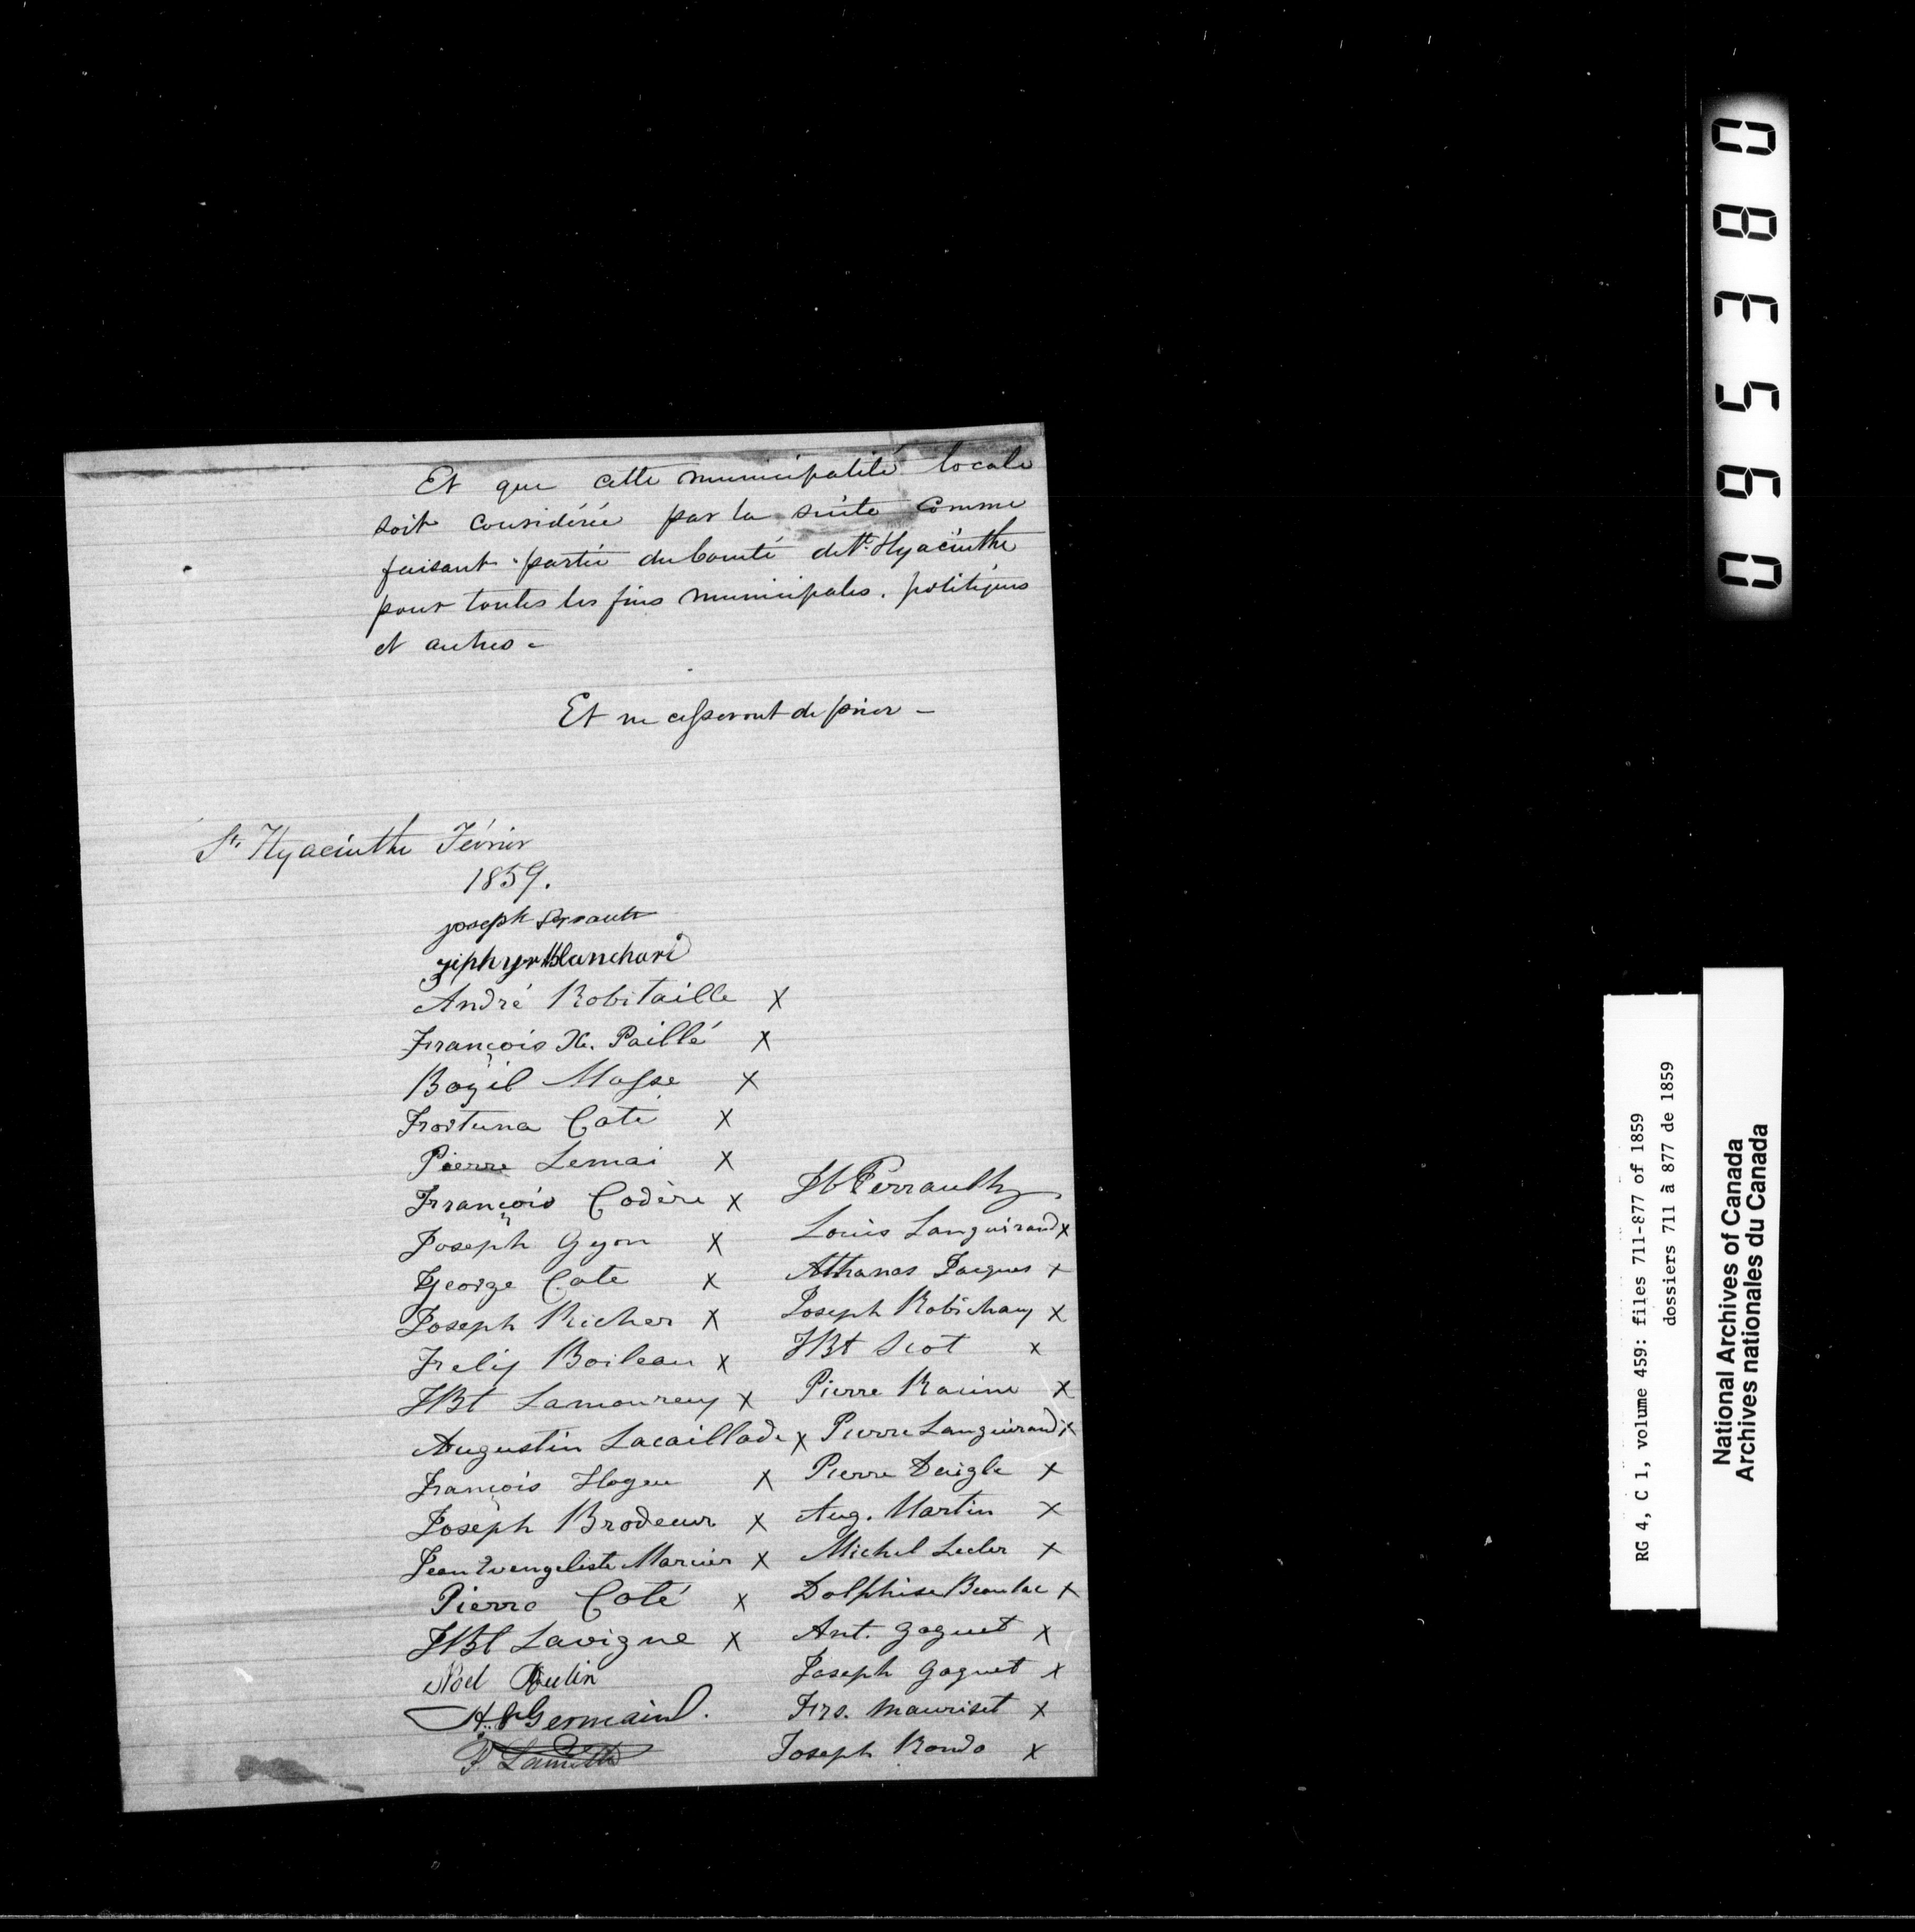 Et que cette municipalité locale
soit considérée par la suite comme
faisant partie du Comté de St. Hyacinthe
pour toutes les fins municipales, politiques
et autres -
Et ne cesseront de prier -
St. Hyacinthe Février
1859.
joseph
zephyr Blanchard
André Robitaille X
François X. Paillé X
Bozil Masse X
Fortuna Coté X
Pierre Lemai X
François Codère X
Joseph Gyon X
George Cote X
Joseph Richer X
Felix Boileau X
JBt Lamoureux X
Augustin Lacaillade X
François Hogue X
Joseph Brodeur X
Jean Evengeliste Marcier X
Pierre Coté X
JBt Lavigne X
Noel
H. St Germain.
P.
Jb Perrault
Louis Languirand X
Athanas Jacques X
Joseph Robichaux X
JBt Scot X
Pierre Racine X
Pierre Languirand X
Pierre Daigle X
Aug. Martin X
Michel Lecler X
Dolphise Beaulac X
Ant. Goguet X
Joseph Goguet X
Frs. Mauriset X
Joseph Rondo X
086360
RG 4, C 1, volume 459: files 711-877 of 1859
dossiers 711 à 877 de 1859
National Archives of Canada
Archives nationales du Canada